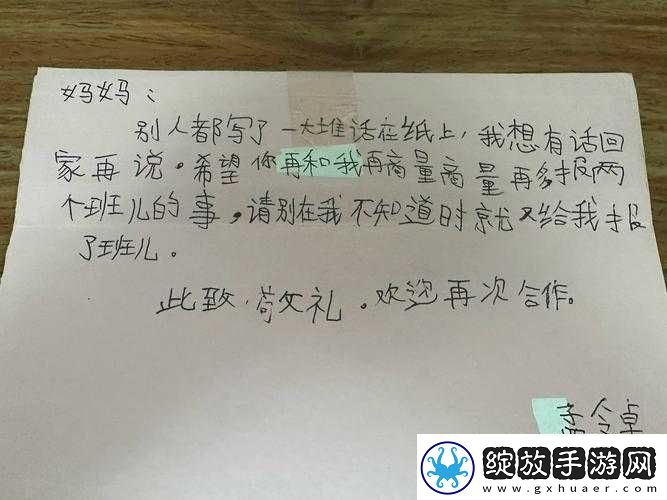 妈妈：
别人都写了一大堆话在纸上，我想有话回
家再说。希望你再和我再商量商量再多报两
个班儿的事，请别在我不知道时就又给我报
了班儿。
此致，敬礼。欢迎再次合作。
孟令卓
绽放手游网
www.gxhuaer.com